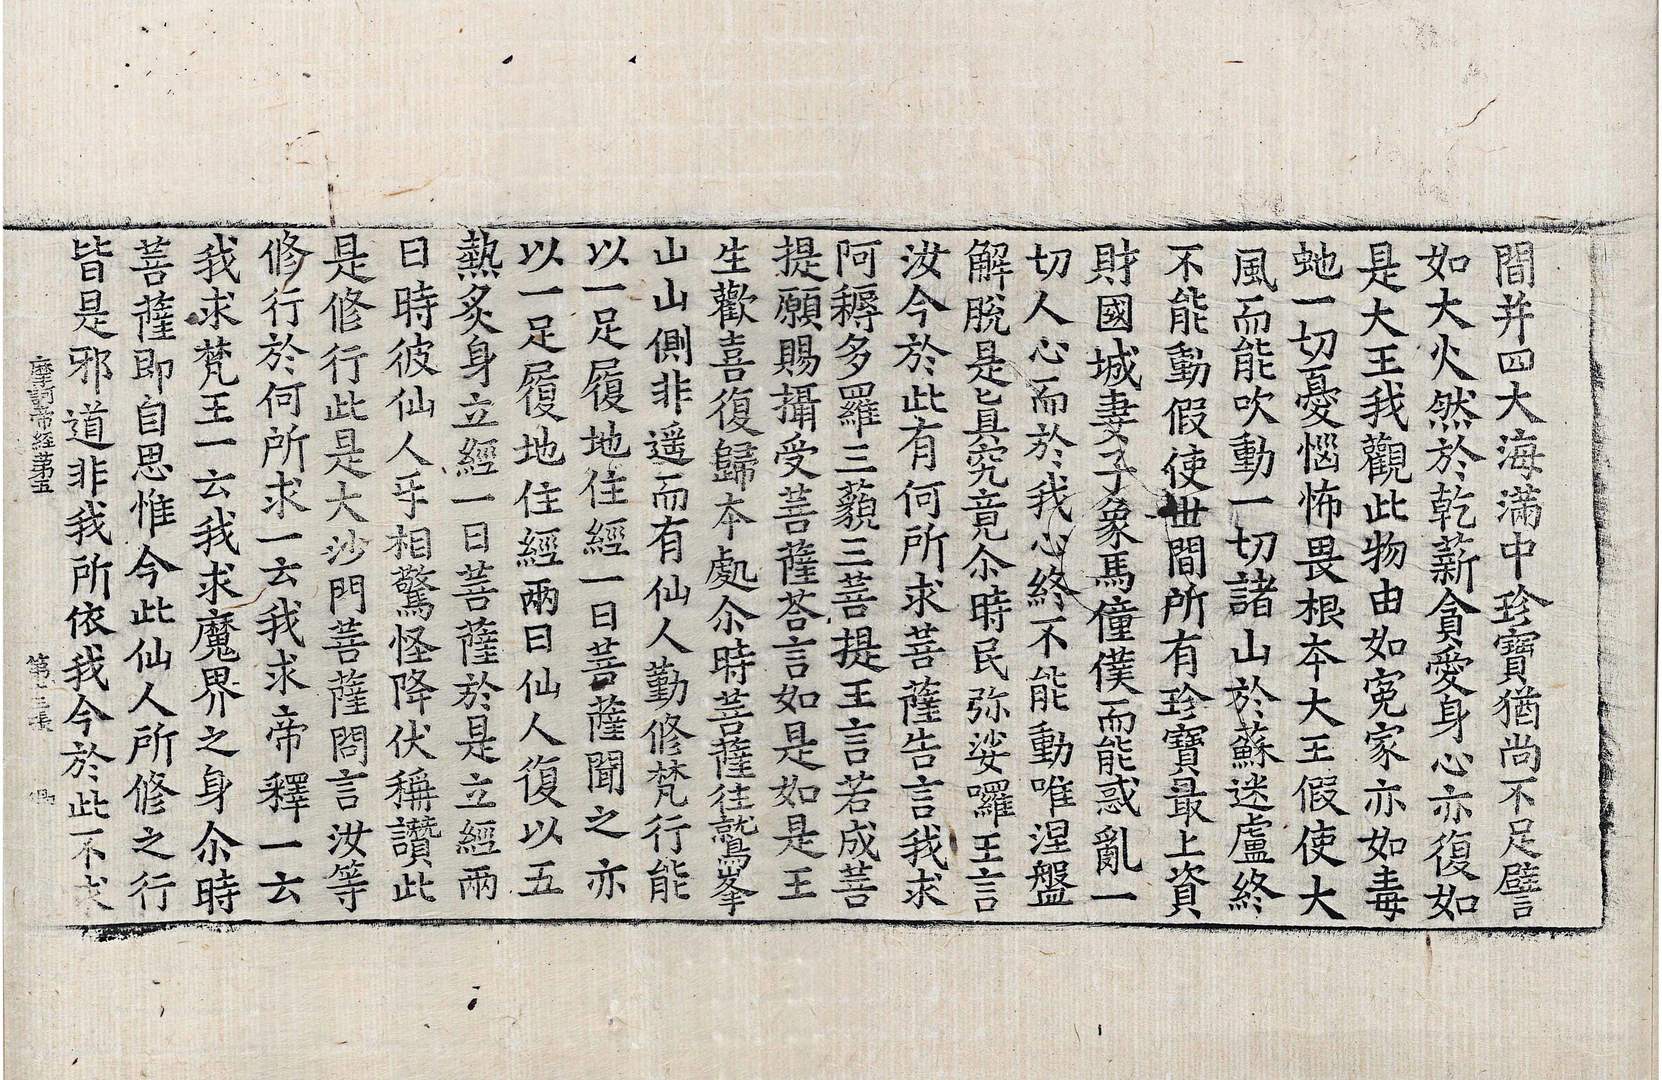 間并四大海滿中珍寶猶尚不足譬
如大火然於乾薪貪愛身心亦復如
是大王我觀此物由如冤家亦如毒
虵一切憂惱怖畏根本大王假使大
風而能吹動一切諸山於蘇迷盧終
不能動假使世間所有珍寶最上資
財國城妻子象馬僮僕而能惑亂一
切人心而於我心終不能動唯涅盤
解脫是眞究竟尒時民弥娑囉王言
汝今於此有何所求菩薩告言我求
阿耨多羅三藐三菩提王言若成菩
提願賜攝受菩薩荅言如是如是王
生歡喜復歸本處尒時菩薩往鷲峯
山山側非遥而有仙人勤修梵行能
以一足履地住經一日菩薩聞之亦
以一足履地住經兩日仙人復以五
熱炙身立經一日菩薩於是立經兩
日時彼仙人乎相驚怪降伏稱讚此
是修行此是大沙門菩薩問言汝等
修行於何所求一云我求帝釋一云
我求梵王一云我求魔界之身尒時
菩薩即自思惟今此仙人所修之行
皆是邪道非我所依我今於此不求
摩訶帝經第五 第十三張